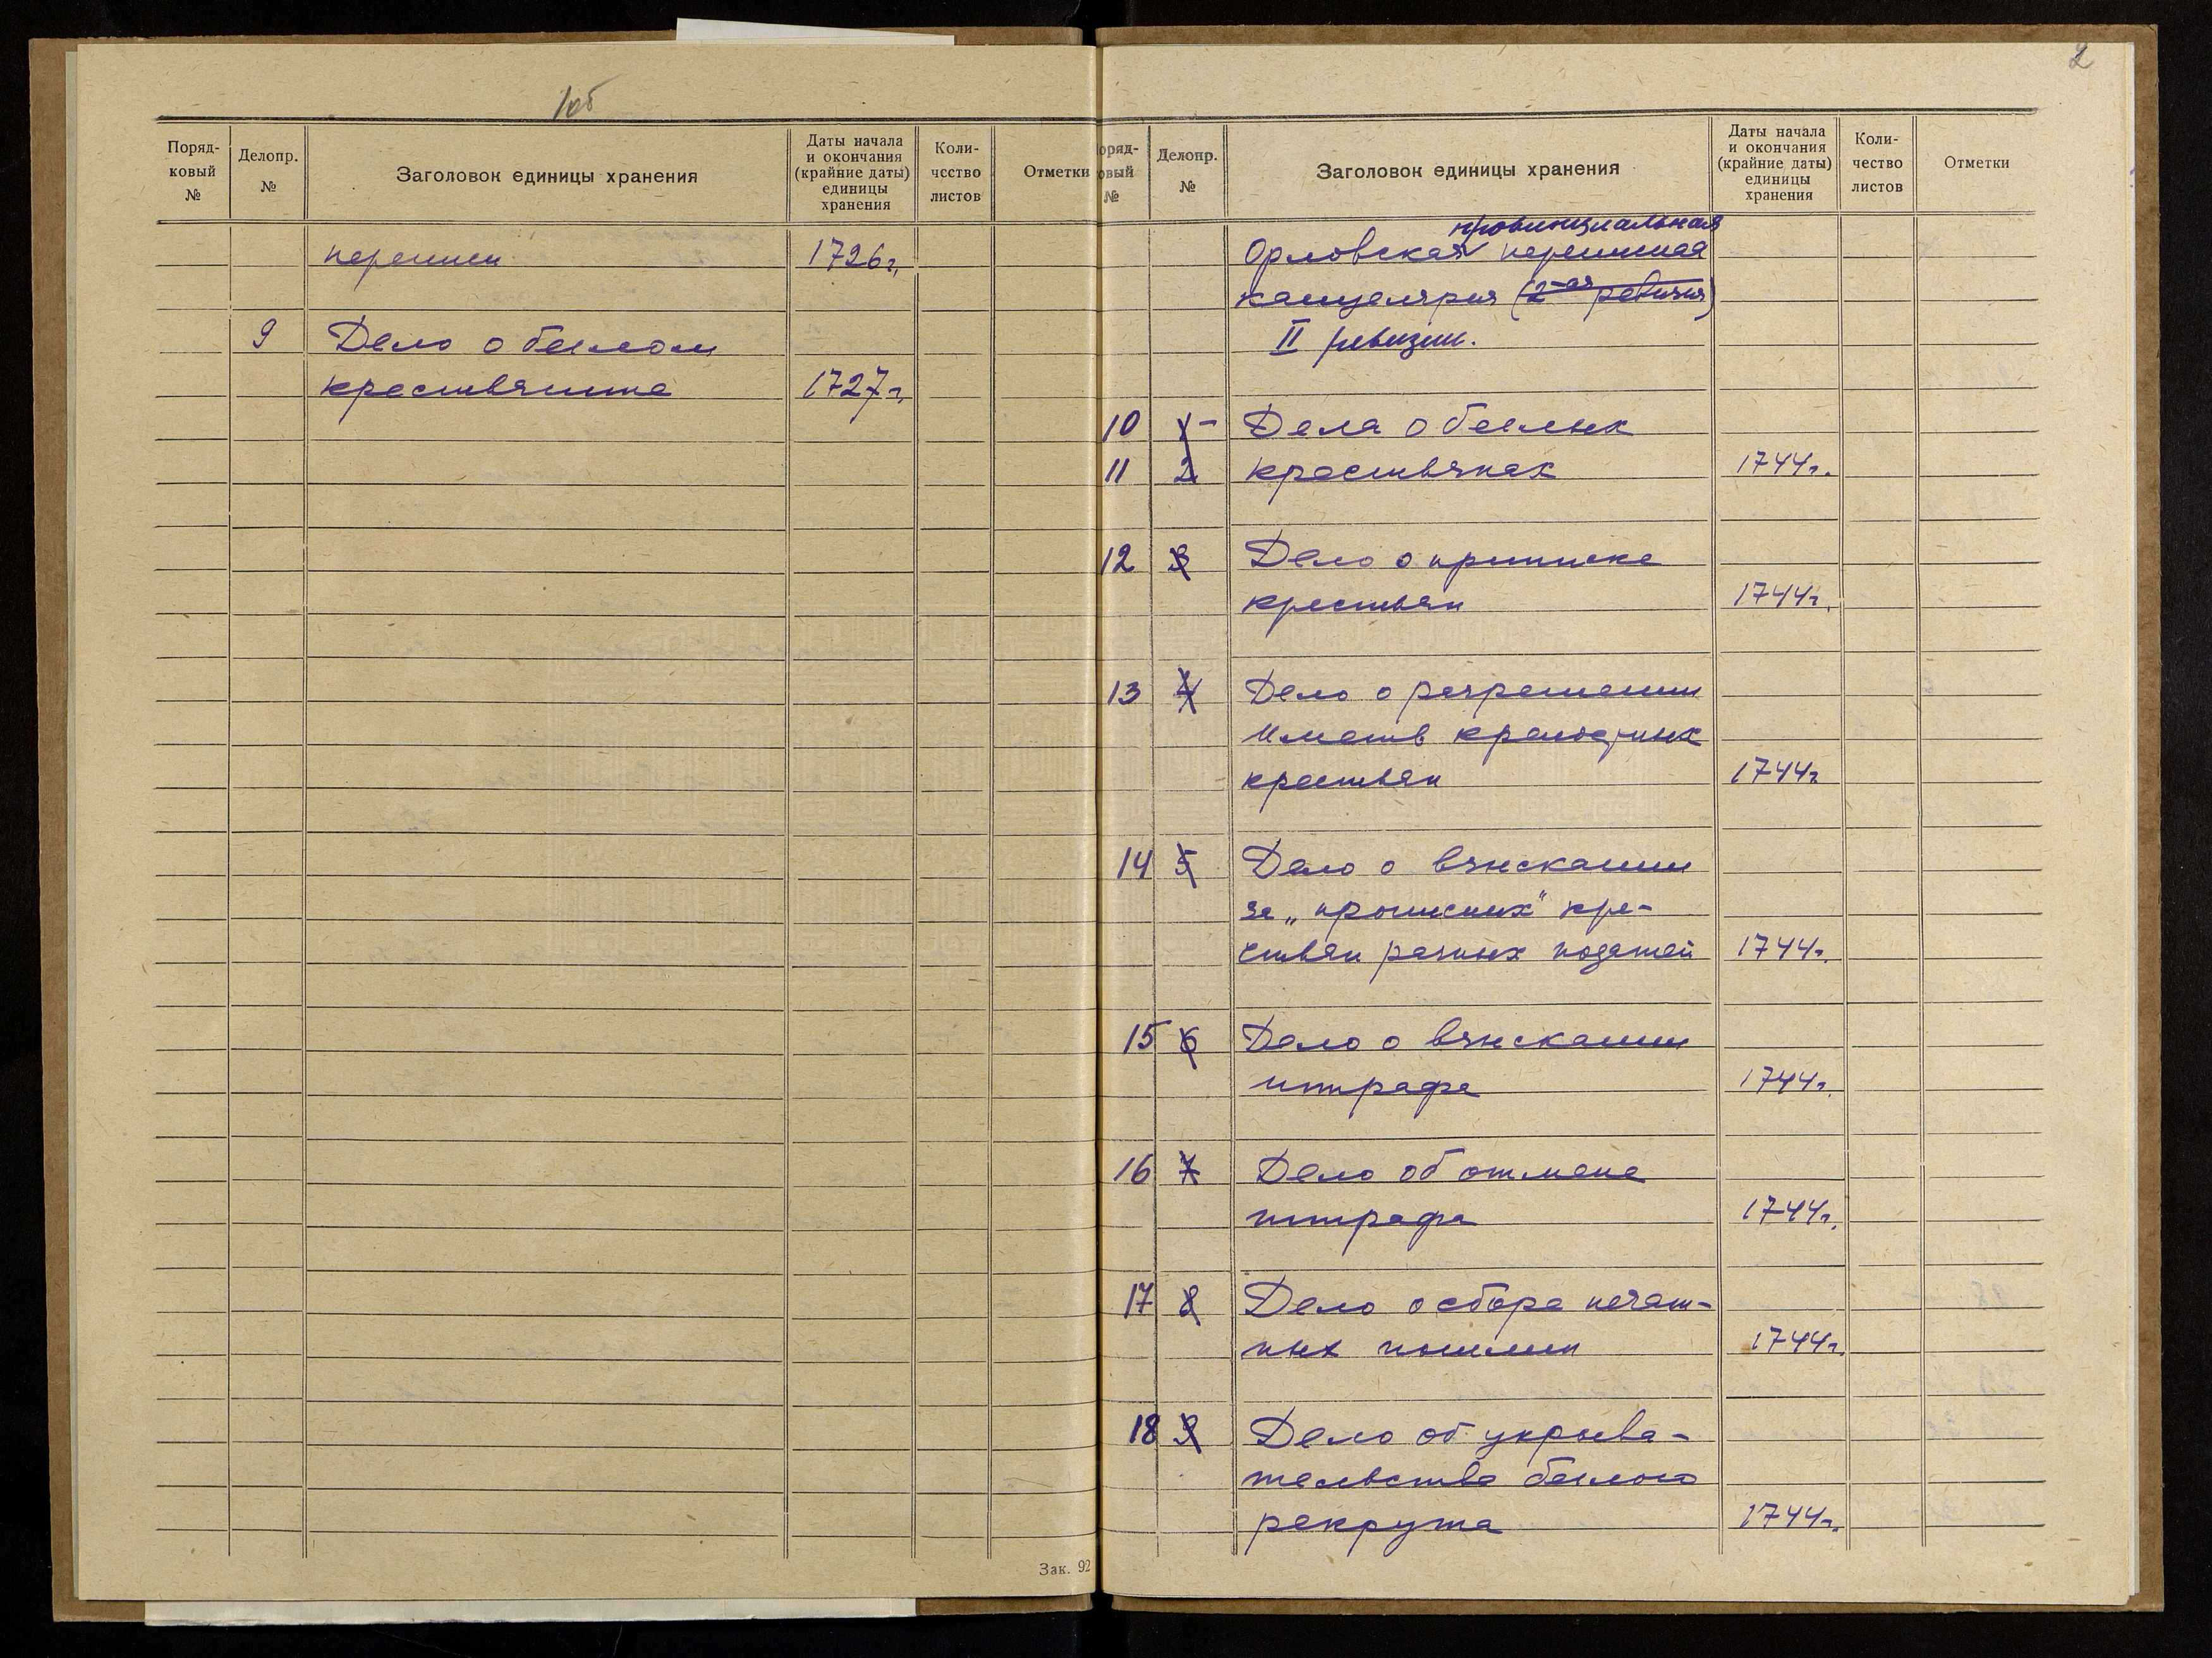 1об
Поряд-
ковый
№
Делопр.
№
Заголовок единицы хранения
Даты начала
и окончания
(крайние даты)
единицы
хранения
Коли-
чество
листов
Отметки
переписи 1726 г.
9 Дело о беглом
крестьянине 1727 г.
Зак. 92
2
оряд-
овый
№
Делопр.
№
Заголовок единицы хранения
Даты начала
и окончания
(крайние даты)
единицы
хранения
Коли-
чество
листов
Отметки
провинциальная
Орловская переписная
канцелярия (2-ая ревизия)
II ревизии.
10 1 - Дела о беглых
11 2 крестьянах 1744 г.
12 3 Дело о приписке
крестьян 1744 г.
13 4 Дело о разрешении
иметь крепостных
крестьян 1744 г
14 5 Дело о взыскании
за „прописных" кре-
стьян разных податей 1744 г.
15 6 Дело о взыскании
штрафа 1744 г.
16 7 Дело об отмене
штрафа 1744 г.
17 8 Дело о сборе печат-
ных пошлин 1744 г.
18 9 Дело об укрыва-
тельстве беглого
рекрута 1744 г.